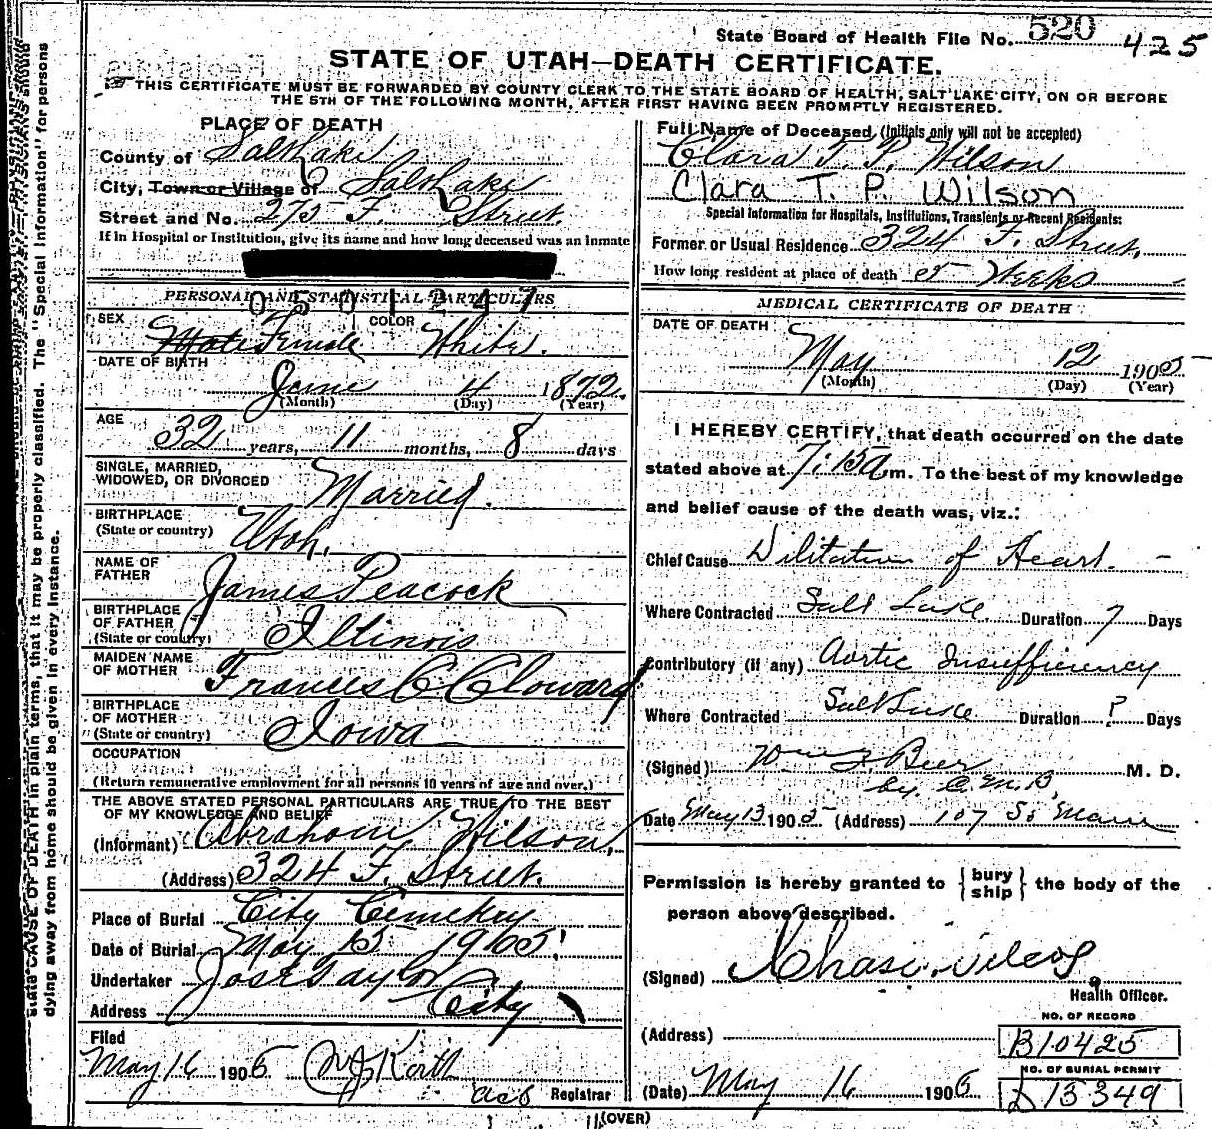 State Board of Health File No. 520 425
STATE OF UTAH—DEATH CERTIFICATE.
THIS CERTIFICATE MUST BE FORWARDED BY COUNTY CLERK TO THE STATE BOARD OF HEALTH, SALT LAKE CITY, ON OR BEFORE
THE 5TH OF THE FOLLOWING MONTH, AFTER FIRST HAVING BEEN PROMPTLY REGISTERED.
PLACE OF DEATH
County of Salt Lake
City, Town or Village of Salt Lake
Street and No. 275 F. Street
If in Hospital or Institution, give its name and how long deceased was an inmate
PERSONAL AND STATISTICAL PARTICULARS
0501247
SEX Male Female COLOR White.
DATE OF BIRTH
June 4 1872.
(Month) (Day) (Year)
AGE
32 years, 11 months, 8 days
SINGLE, MARRIED,
WIDOWED, OR DIVORCED Married.
BIRTHPLACE
(State or country) Utah.
NAME OF
FATHER James Peacock
BIRTHPLACE
OF FATHER
(State or country) Illinois
MAIDEN NAME
OF MOTHER Frances C. Cloward
BIRTHPLACE
OF MOTHER
(State or country) Iowa
OCCUPATION
(Return remunerative employment for all persons 10 years of age and over.)
THE ABOVE STATED PERSONAL PARTICULARS ARE TRUE TO THE BEST
OF MY KNOWLEDGE AND BELIEF
(Informant) Abraham Wilson,
(Address) 324 F. Street.
Place of Burial City Cemetery
Date of Burial May 15 1905.
Undertaker Jos E Taylor
Address City
Filed
May 16 1905
acb Registrar
Full Name of Deceased, (Initials only will not be accepted)
Clara T. P. Wilson
Clara T. P. Wilson
Special Information for Hospitals, Institutions, Transients or Recent Residents:
Former or Usual Residence 324 F. Street,
How long resident at place of death Weeks
MEDICAL CERTIFICATE OF DEATH
DATE OF DEATH
May 12 1905
(Month) (Day) (Year)
I HEREBY CERTIFY, that death occurred on the date
stated above at 7:15 a m. To the best of my knowledge
and belief cause of the death was, viz.:
Chief Cause Dilitation of Heart.
Where Contracted Salt Lake Duration 7 Days
Contributory (if any) Aortic Insufficiency
Where Contracted Salt Lake Duration ? Days
(Signed) Beer M. D.
by C.M.B.
Date May 13 1905 (Address) 107 So Main
Permission is hereby granted to { bury
ship } the body of the
person above described.
(Signed)
Health Officer.
(Address)
NO. OF RECORD
B10425
NO. OF BURIAL PERMIT
D 13349
(Date) May 16 1905
(OVER)
state CAUSE OF DEATH in plain terms, that it may be properly classified. The "Special Information" for persons
dying away from home should be given in every instance.